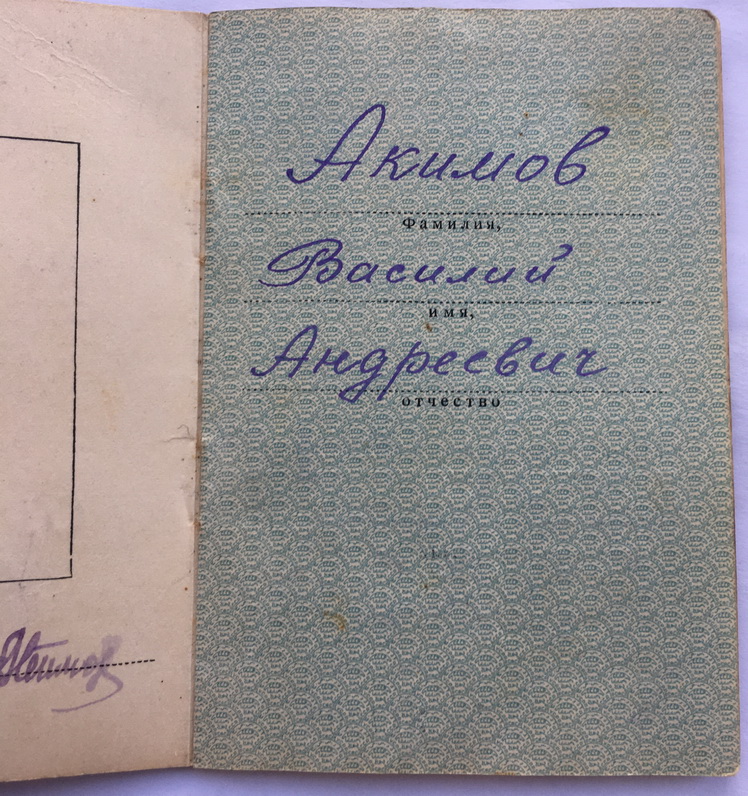 Акимов
Фамилия,
Василий
имя,
Андреевич
отчество
Акимов